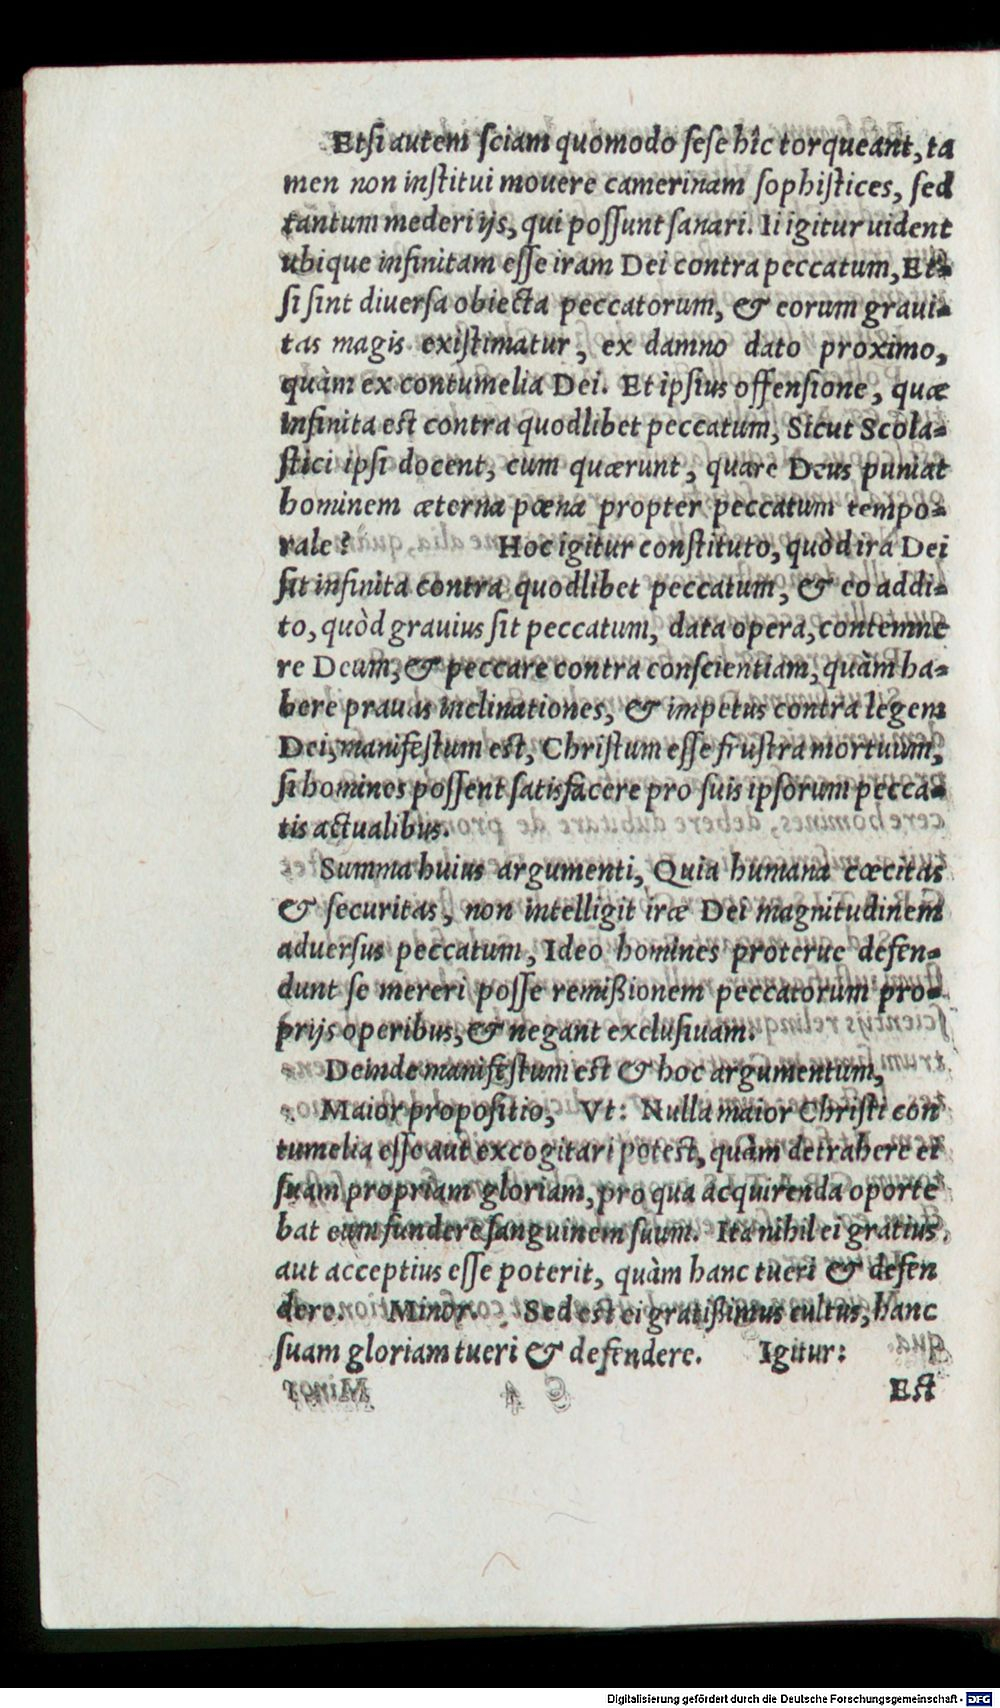 Etsi autem sciam quomodo sese hîc torqueant, ta
men non institui mouere camerinam sophistices, sed
tantum mederi ijs, qui possunt sanari. Ii igitur uident
ubique infinitam esse iram Dei contra peccatum, Et-
si sint diuersa obiecta peccatorum, & eorum graui-
tas magis existimatur, ex damno dato proximo,
quàm ex contumelia Dei. Et ipsius offensione, quæ
infinita est contra quodlibet peccatum, Sicut Scola-
stici ipsi docent, cum quærunt, quare Deus puniat
hominem æterna pœna propter peccatum tempo-
rale? Hoc igitur constituto, quòd ira Dei
sit infinita contra quodlibet peccatum, & eo addi-
to, quòd grauius sit peccatum, data opera, contemne
re Deum, & peccare contra conscientiam, quàm ha-
bere prauas inclinationes, & impetus contra legem
Dei, manifestum est, Christum esse frustra mortuum,
si homines possent satisfacere pro suis ipsorum pecca-
tis actualibus.
Summa huius argumenti, Quia humana cœcitas
& securitas, non intelligit iræ Dei magnitudinem
aduersus peccatum, Ideo homines proterue defen-
dunt se mereri posse remißionem peccatorum pro-
prijs operibus, & negant exclusiuam.
Deinde manifestum est & hoc argumentum,
Maior propositio, Vt: Nulla maior Christi con
tumelia esse aut excogitari potest, quàm detrahere ei
suam propriam gloriam, pro qua acquirenda oporte
bat eum fundere sanguinem suum. Ita nihil ei gratius,
aut acceptius esse poterit, quàm hanc tueri & defen
dere. Minor. Sed est ei gratißimus cultus, hanc
suam gloriam tueri & defendere. Igitur:
Est
Digitalisierung gefördert durch die Deutsche Forschungsgemeinschaft - DFG